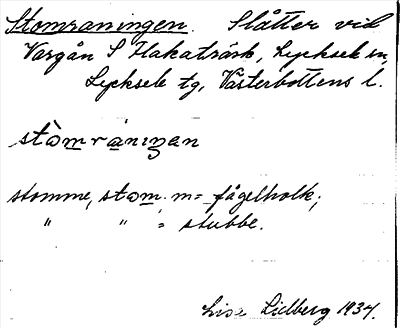 Stomraningen. Slåtter vid
Vargån S Hakaträsk, Lycksele sn,
Lycksele tg, Västerbottens l.
stòmràniŋan
stomme, stom. m = fågelholk;
" " = stubbe.
Lisa Lidberg 1934.